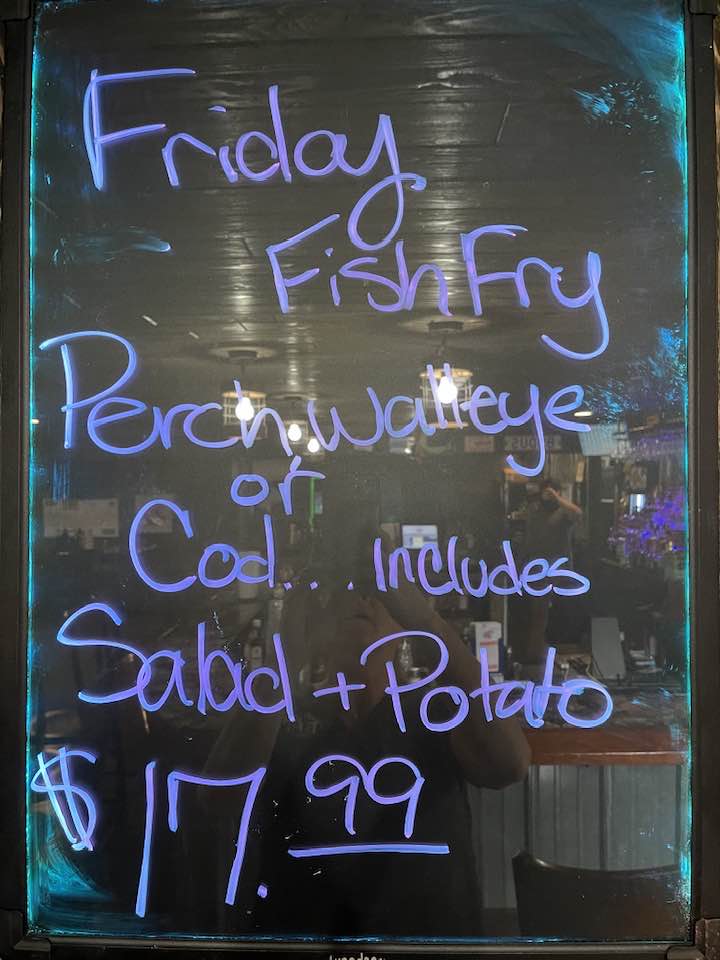 Friday
Fish Fry
Perch, Walleye
or
Cod... includes
Salad + Potato
$17.99